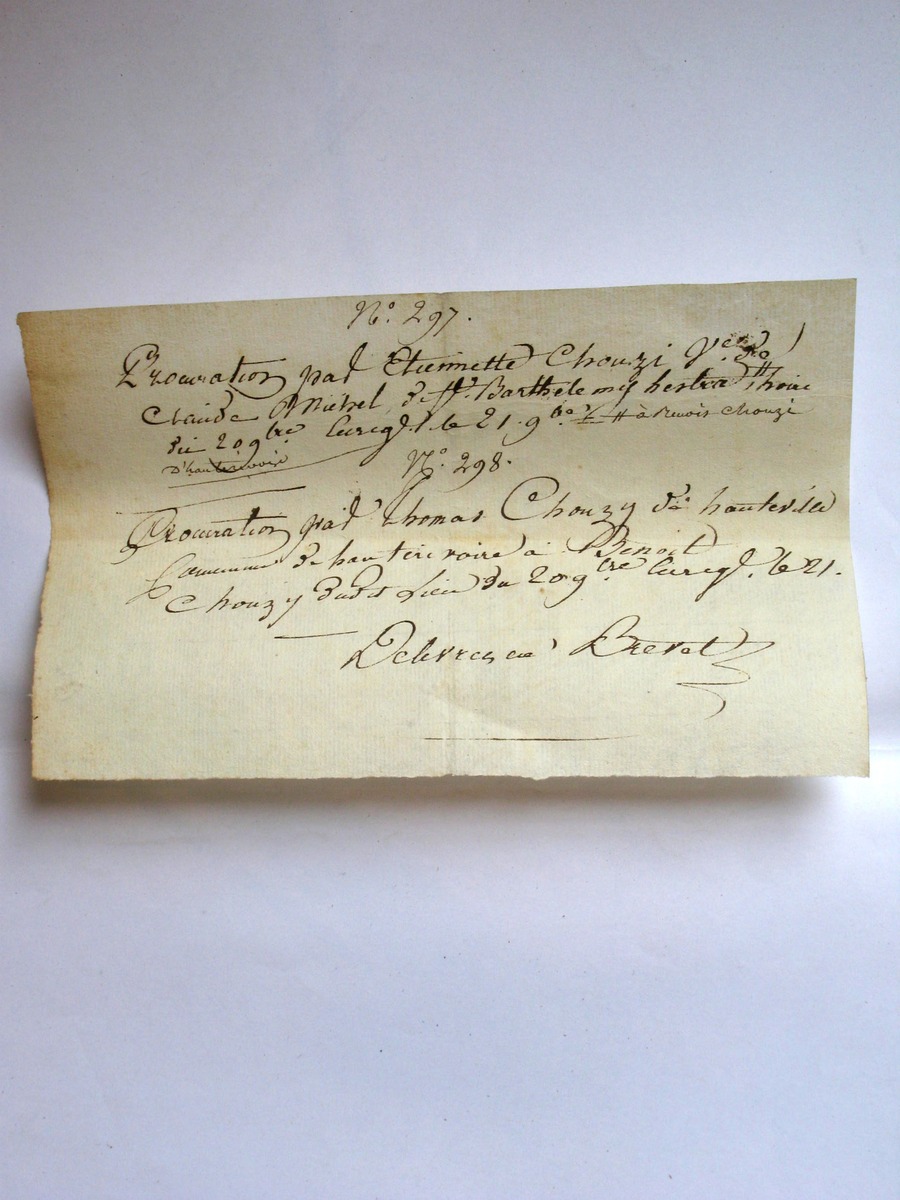 N.° 297.
Procuration par Etiennette Chouzi v.e de
Claude Michel, de St. Barthelemy
du 20 9bre Enregt. le 21. 9bre # à Benoit Chouzi
D'hauterivoire
N.° 298.
Procuration par Thomas Chouzy de hauteville
Commune de hauterivoire à Benoit
Chouzy dudit Lieu du 20 9bre Enregt. le 21.
Brevet